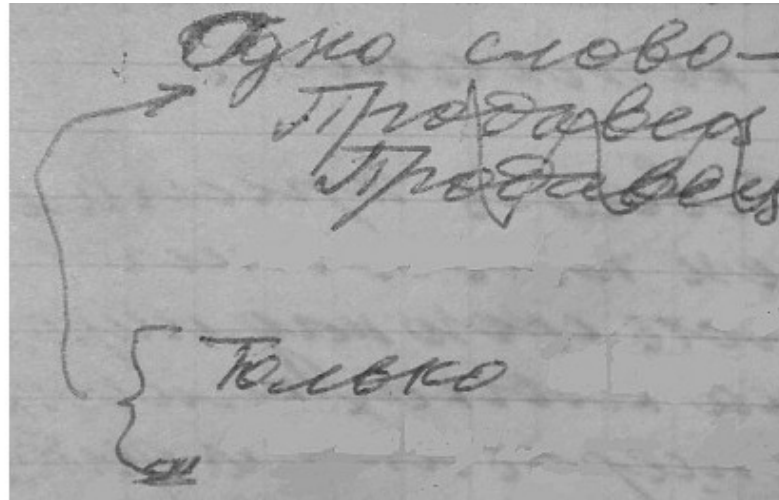 Одно слово —
Продавец
Продавец
Только